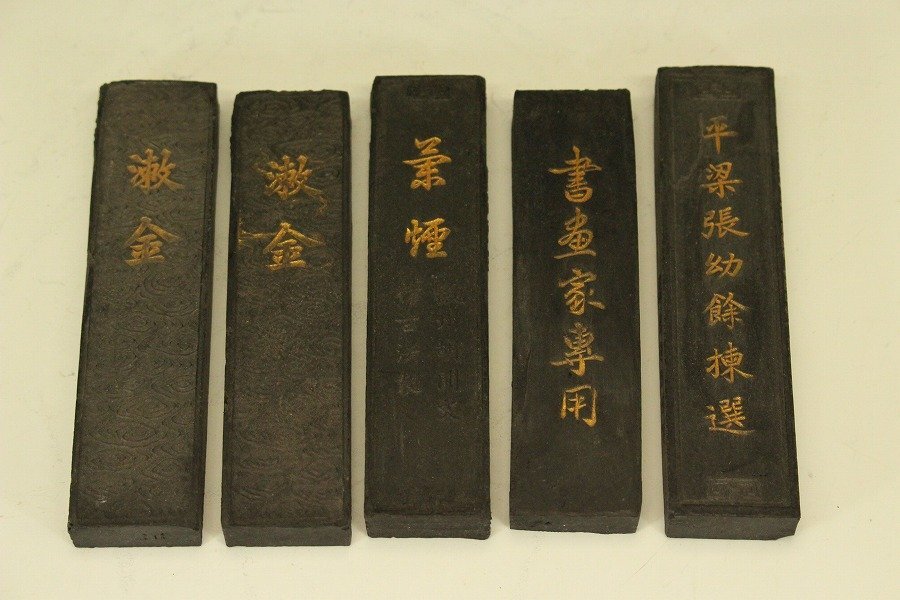 漱金
漱金
煙
書畫家專用
平梁張幼餘揀選